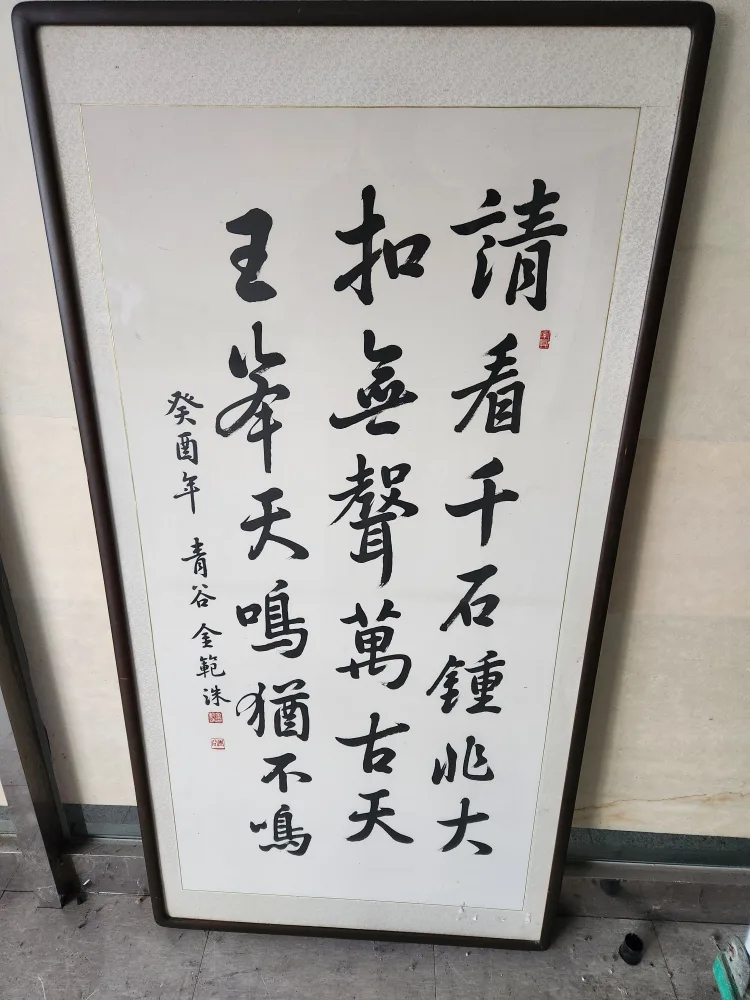 請看千石鍾非大
扣無聲萬古天
王峯天鳴猶不鳴
癸酉年 青谷 金範洙